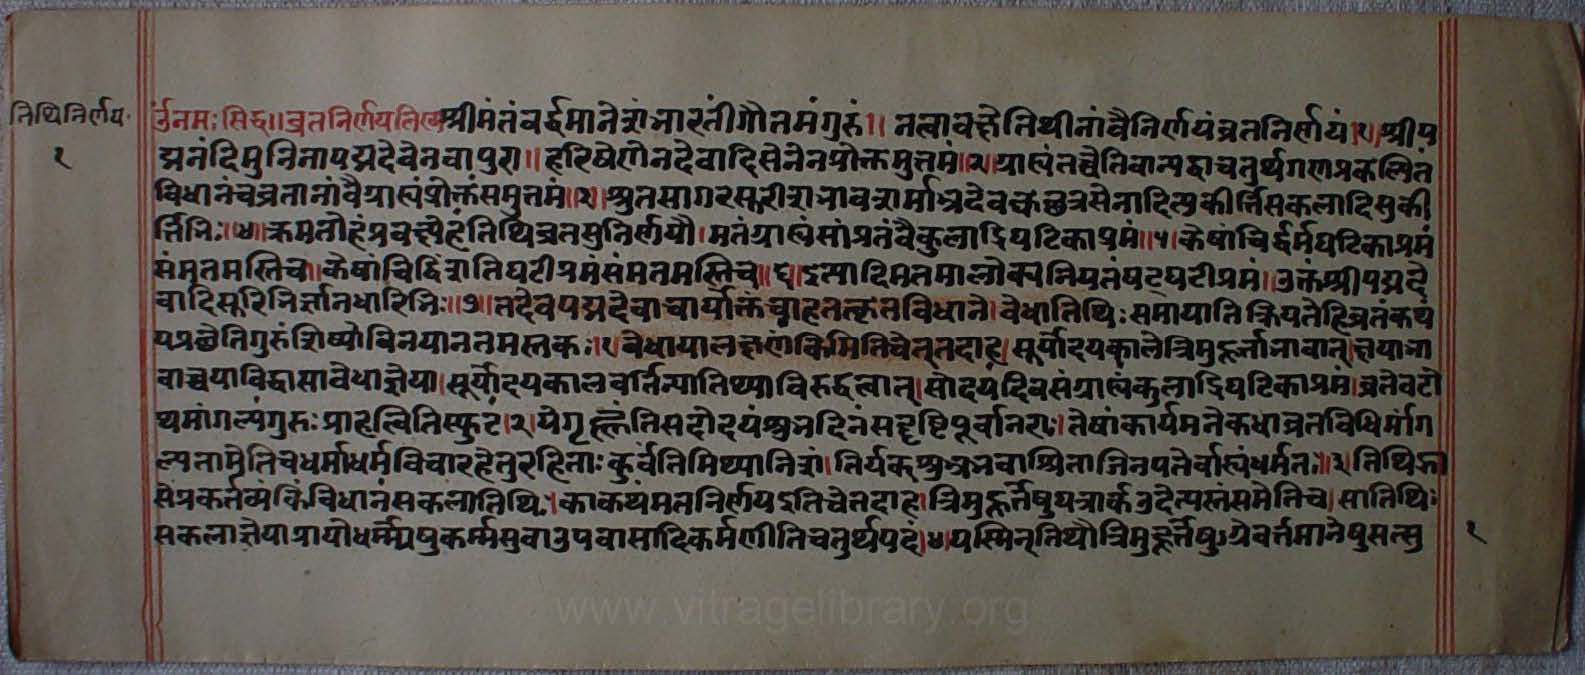 तिथिनिर्णय
१
र्उनमः सिद्ध॥ व्रतनिर्णयलिख्य श्रीमंतंवर्द्धमानेशंभारतींगौतमंगुरुं॥ नत्वावक्ष्येतिथीनांवैनिर्णयंव्रतनिर्णयं।१। श्रीप
द्मनंदिमुनिनापद्मदेवेनवापुरा॥ हरिषेणेनदेवादिसेनेनप्रोक्तमुत्तमं॥२। ग्राह्यंतच्चैतिवान्यद्वाचतुर्थगणप्रकल्पितं
विधानंचव्रतानांवैग्राह्यंप्रोक्तंसमुत्तमं॥३। श्रुतसागरसूरीशभावशर्माभ्रदेवकछत्रसेनादित्यकीर्त्तिसकलादिसुकी
र्त्तिभिः।४॥ क्रमतोहंप्रवक्ष्येहंतिथिव्रतसुनिर्णयौ। मतंग्राह्यंसांप्रतंवैकुलाद्रिघटिकाप्रमं॥५। केषांचिद्धर्मघटिकाप्रमं
संमतमस्तिच। केषांचिद्विंशतिघटीप्रमंसंमतमस्तिच॥६। इत्यादिमतमालोक्यनियतंषट्घटीप्रमं॥ उक्तंश्रीपद्मदे
वादिसूरिभिर्ज्ञानधारिभिः॥७॥ तदेवपद्मदेवाचार्योक्तंचाहतत्कृतविधाने। वेधातिथिः समायातिक्रियतेहिव्रतंकथं
पप्रच्छेतिगुरुंशिष्योविनयानतमस्तकः।१। वेधायालक्षणंकिमितिचेत्तदाह। सूर्योदयकालेत्रिमुहूर्त्ताभावात्। क्षयाभा
वाच्चयाविद्धासावेधाज्ञेया। सूर्योदयकालवर्त्तिन्यातिथ्याविरुद्धत्वात्। सोदयंदिवसंग्राह्यंकुलाद्रिघटिकाप्रमं। व्रतेवटो
थमांगल्यंगुरुः प्राहत्वितिस्फुटं।२। येगृह्णंतिसदोदयंशुभदिनंसदृष्टिपूर्वानराः। तेषांकार्यमनेकधाव्रतविधिर्माग
ल्यतामेतिचधर्माधर्मविचारहेतुरहिताः कुर्वंतिमिथ्यानिशं। तिर्यक्श्वभ्रभवाश्रिताजिनपतेर्बाह्यंधर्मतः।३। तिथिह्रा
सेप्रकर्तव्यंकिंविधानंसकलातिथिः। काकथंमतनिर्णयइतिचेतदाह। त्रिमुहूर्त्तेषुयत्रार्कउदेत्यस्तंसमेतिच। सातिथिः
सकलाज्ञेयाप्रायोधर्म्म्येषुकर्म्मसुवाउपवासादिकर्मणीतिचतुर्थपदं।४। यस्मिन्तिथौत्रिमुहूर्त्तेषुग्रेवर्त्तमानेषुसत्सु
१
www.vitragelibrary.org